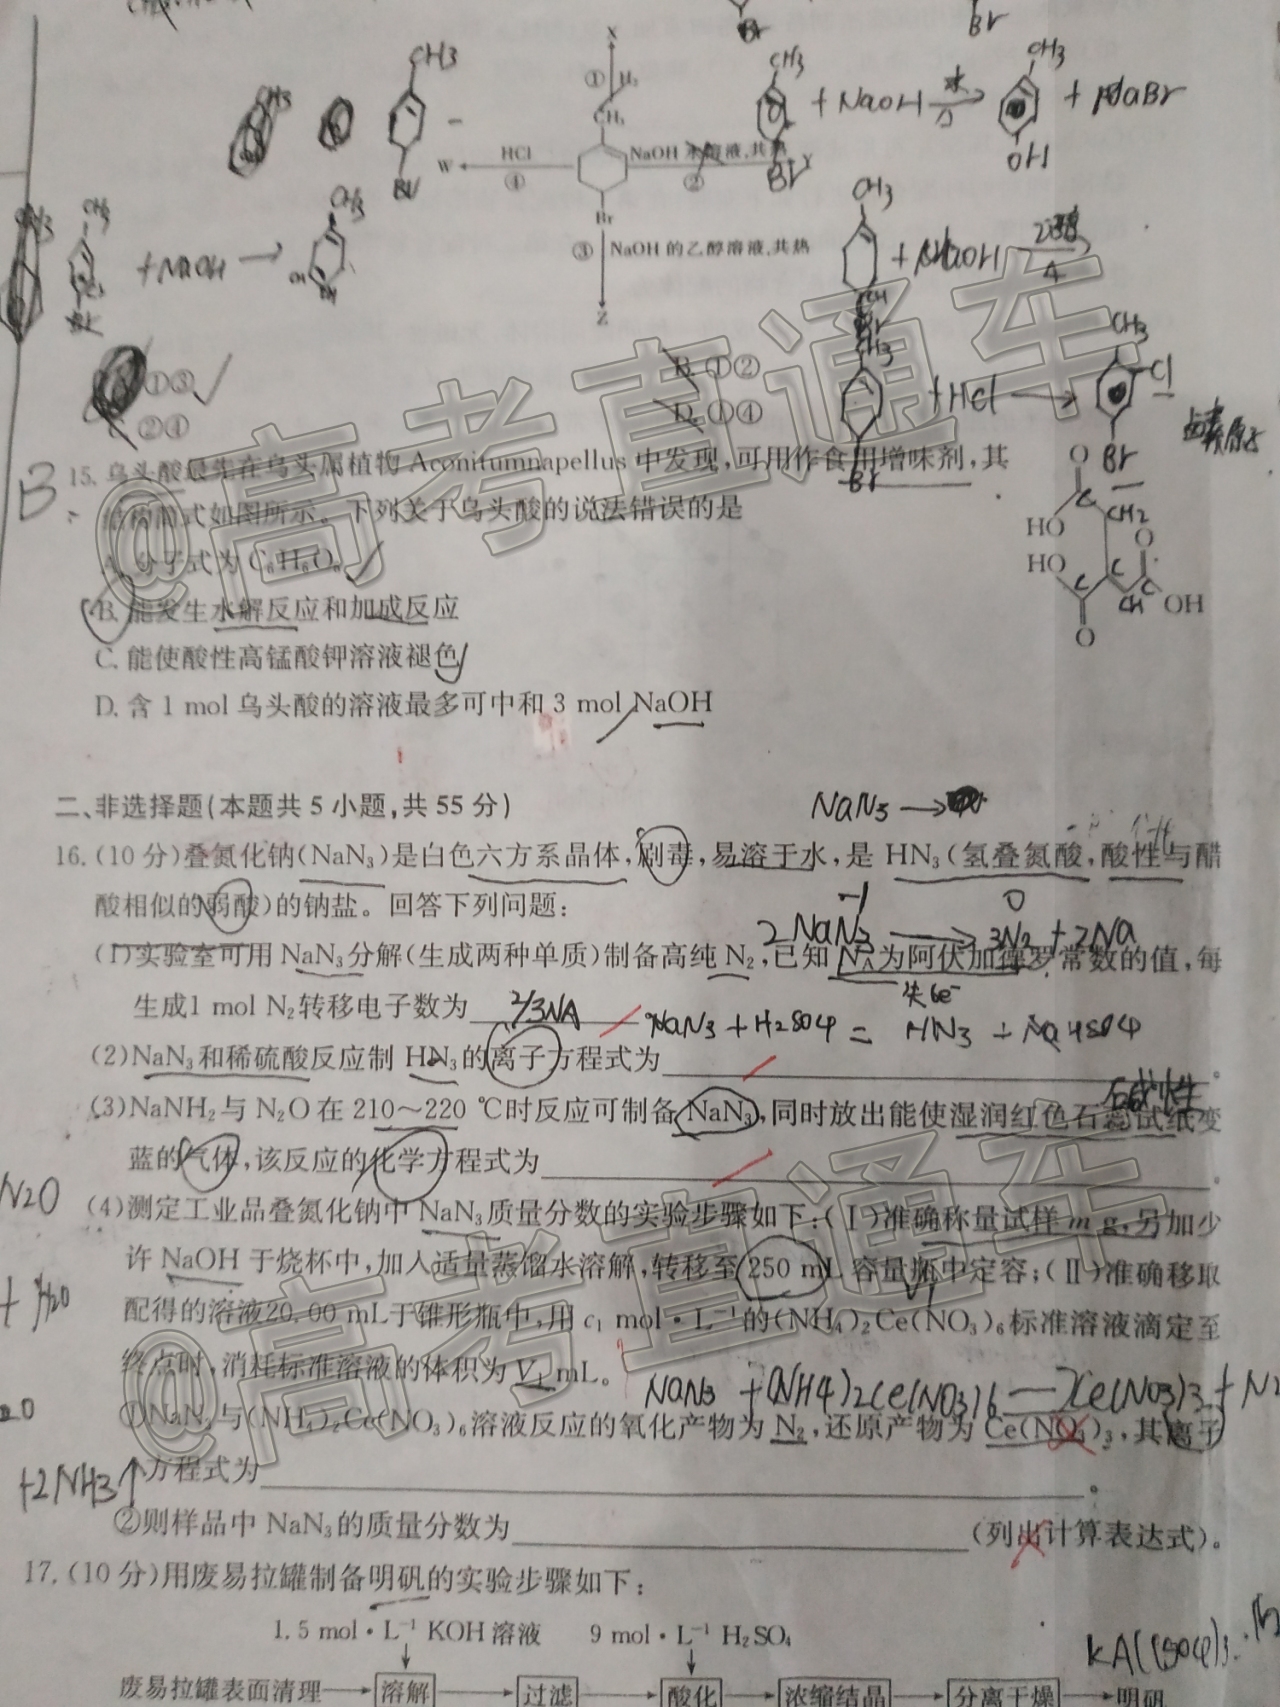 Br
Br
X
① H₂
CH₃
CH3
CH3
CH3
+NaOH 水 △ → + NaBr
CH3
OH
W HCl ④
NaOH 水溶液,共热 ② Y
Br
Br
Br
③ NaOH 的乙醇溶液,共热
Z
CH3
CH3
+NaOH →
CH3
+NaOH
①③
B. ①②
C. ②④
D. ①④
CH3
+HCl →
CH3
Cl
Br
B
15. 乌头酸最先在乌头属植物 Aconitumnapellus 中发现,可用作食用增味剂,其
结构简式如图所示。下列关于乌头酸的说法错误的是
A. 分子式为 C₆H₆O₆
B. 能发生水解反应和加成反应
C. 能使酸性高锰酸钾溶液褪色
D. 含 1 mol 乌头酸的溶液最多可中和 3 mol NaOH
O
HO
CH2
HO
O
OH
O
二、非选择题(本题共 5 小题,共 55 分)
NaN3 →
16. (10 分)叠氮化钠(NaN₃)是白色六方系晶体,剧毒,易溶于水,是 HN₃(氢叠氮酸,酸性与醋
酸相似的弱酸)的钠盐。回答下列问题:
2NaN3 → 3N2 +2Na
(1)实验室可用 NaN₃分解(生成两种单质)制备高纯 N₂,已知 N_A为阿伏加德罗常数的值,每
失6e⁻
生成1 mol N₂转移电子数为 2/3NA
NaN3 + H2SO4 = HN3 + NaHSO4
(2)NaN₃和稀硫酸反应制 HN₃的离子方程式为
(3)NaNH₂与 N₂O在 210~220 ℃时反应可制备 NaN₃,同时放出能使湿润红色石蕊试纸变
蓝的气体,该反应的化学方程式为
N2O
(4)测定工业品叠氮化钠中 NaN₃质量分数的实验步骤如下:(Ⅰ)准确称量试样 m g,另加少
许 NaOH 于烧杯中,加入适量蒸馏水溶解,转移至 250 mL 容量瓶中定容;(Ⅱ)准确移取
+ H2O
配得的溶液20.00 mL于锥形瓶中,用 c₁ mol·L⁻¹的(NH₄)₂Ce(NO₃)₆标准溶液滴定至
终点时,消耗标准溶液的体积为 V₁ mL。
NaN3 +(NH4)2Ce(NO3)6 — Ce(NO3)3 + N2
①NaN₃与(NH₄)₂Ce(NO₃)₆溶液反应的氧化产物为 N₂,还原产物为 Ce(NO₃)₃,其离子
方程式为。
+2NH3↑
②则样品中 NaN₃的质量分数为(列出计算表达式)。
17. (10 分)用废易拉罐制备明矾的实验步骤如下:
1.5 mol·L⁻¹ KOH 溶液 9 mol·L⁻¹ H₂SO₄
废易拉罐表面清理 → 溶解 → 过滤 → 酸化 → 浓缩结晶 → 分离干燥 → 明矾
@高考直通车
@高考直通车